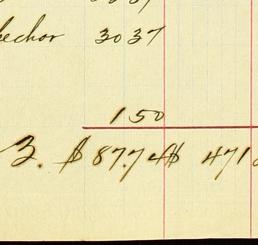 echor 3037
150
3. $ 87.74 $ 471